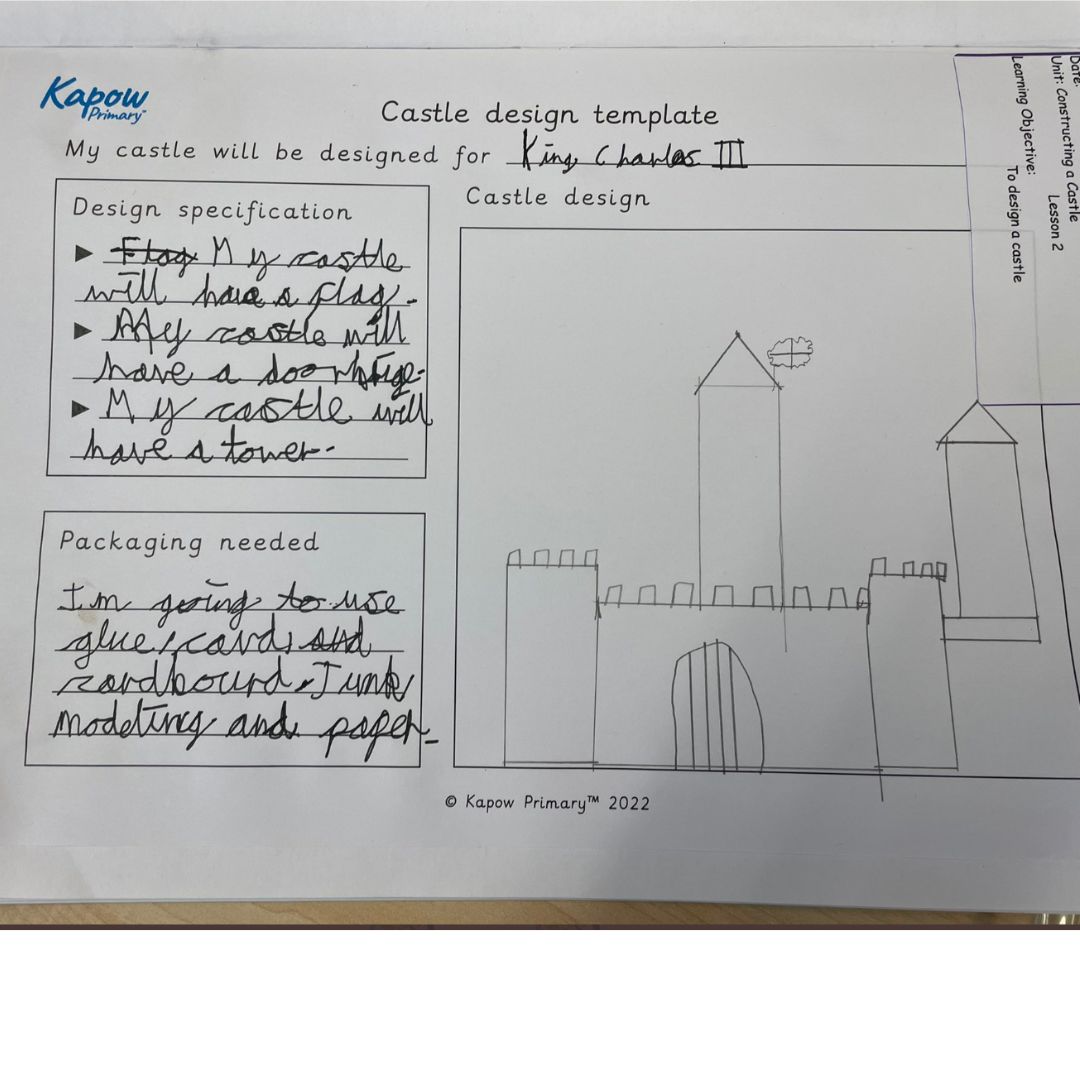 Kapow
Primary™
Castle design template
My castle will be designed for King Charles III
Design specification
Flag My castle
will have a flag.
My castle will
have a
My castle will
have a tower.
Packaging needed
I'm going to use
glue, card, and
cardbourd, Junk
modeling and paper.
Castle design
© Kapow Primary™ 2022
Date:
Unit: Constructing a Castle
Lesson 2
Learning Objective:
To design a castle